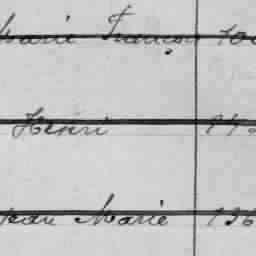 Marie François
Henri
Jean Marie 136